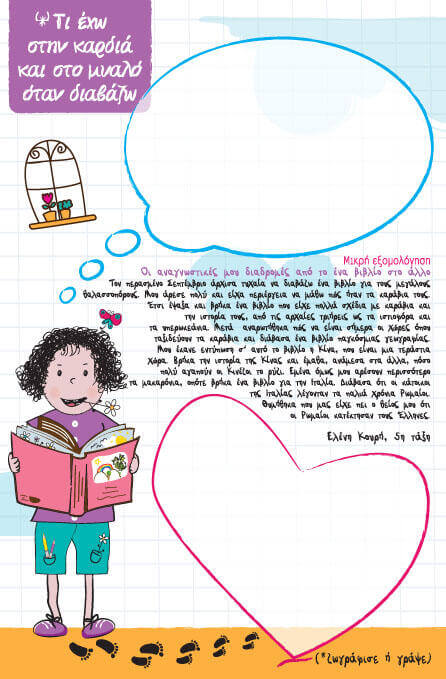 (*) Τι έχω
στην καρδιά
και στο μυαλό
όταν διαβάζω
Μικρή εξομολόγηση
Οι αναγνωστικές μου διαδρομές από το ένα βιβλίο στο άλλο
Τον περασμένο Σεπτέμβριο άρχισα τυχαία να διαβάζω ένα βιβλίο για τους μεγάλους
θαλασσοπόρους. Μου άρεσε πολύ και είχα περιέργεια να μάθω πώς ήταν τα καράβια τους.
Έτσι έψαξα και βρήκα ένα βιβλίο που είχε πολλά σχέδια με καράβια και
την ιστορία τους, από τις αρχαίες τριήρεις ως τα ιστιοφόρα και
τα υπερωκεάνια. Μετά αναρωτήθηκα πώς να είναι σήμερα οι χώρες όπου
ταξίδευαν τα καράβια και διάβασα ένα βιβλίο παγκόσμιας γεωγραφίας.
Μου έκανε εντύπωση σ' αυτό το βιβλίο η Κίνα, που είναι μια τεράστια
χώρα. Βρήκα την ιστορία της Κίνας και έμαθα, ανάμεσα στα άλλα, πόσο
πολύ αγαπούν οι Κινέζοι το ρύζι. Εμένα όμως μου αρέσουν περισσότερο
τα μακαρόνια, οπότε βρήκα ένα βιβλίο για την Ιταλία. Διάβασα ότι οι κάτοικοι
της Ιταλίας λέγονταν τα παλιά χρόνια Ρωμαίοι.
Θυμήθηκα που μας είχε πει ο θείος μου ότι
οι Ρωμαίοι κατέκτησαν τους Έλληνες.
Ελένη Κουρή, 5η τάξη
(*ζωγράφισε ή γράψε)